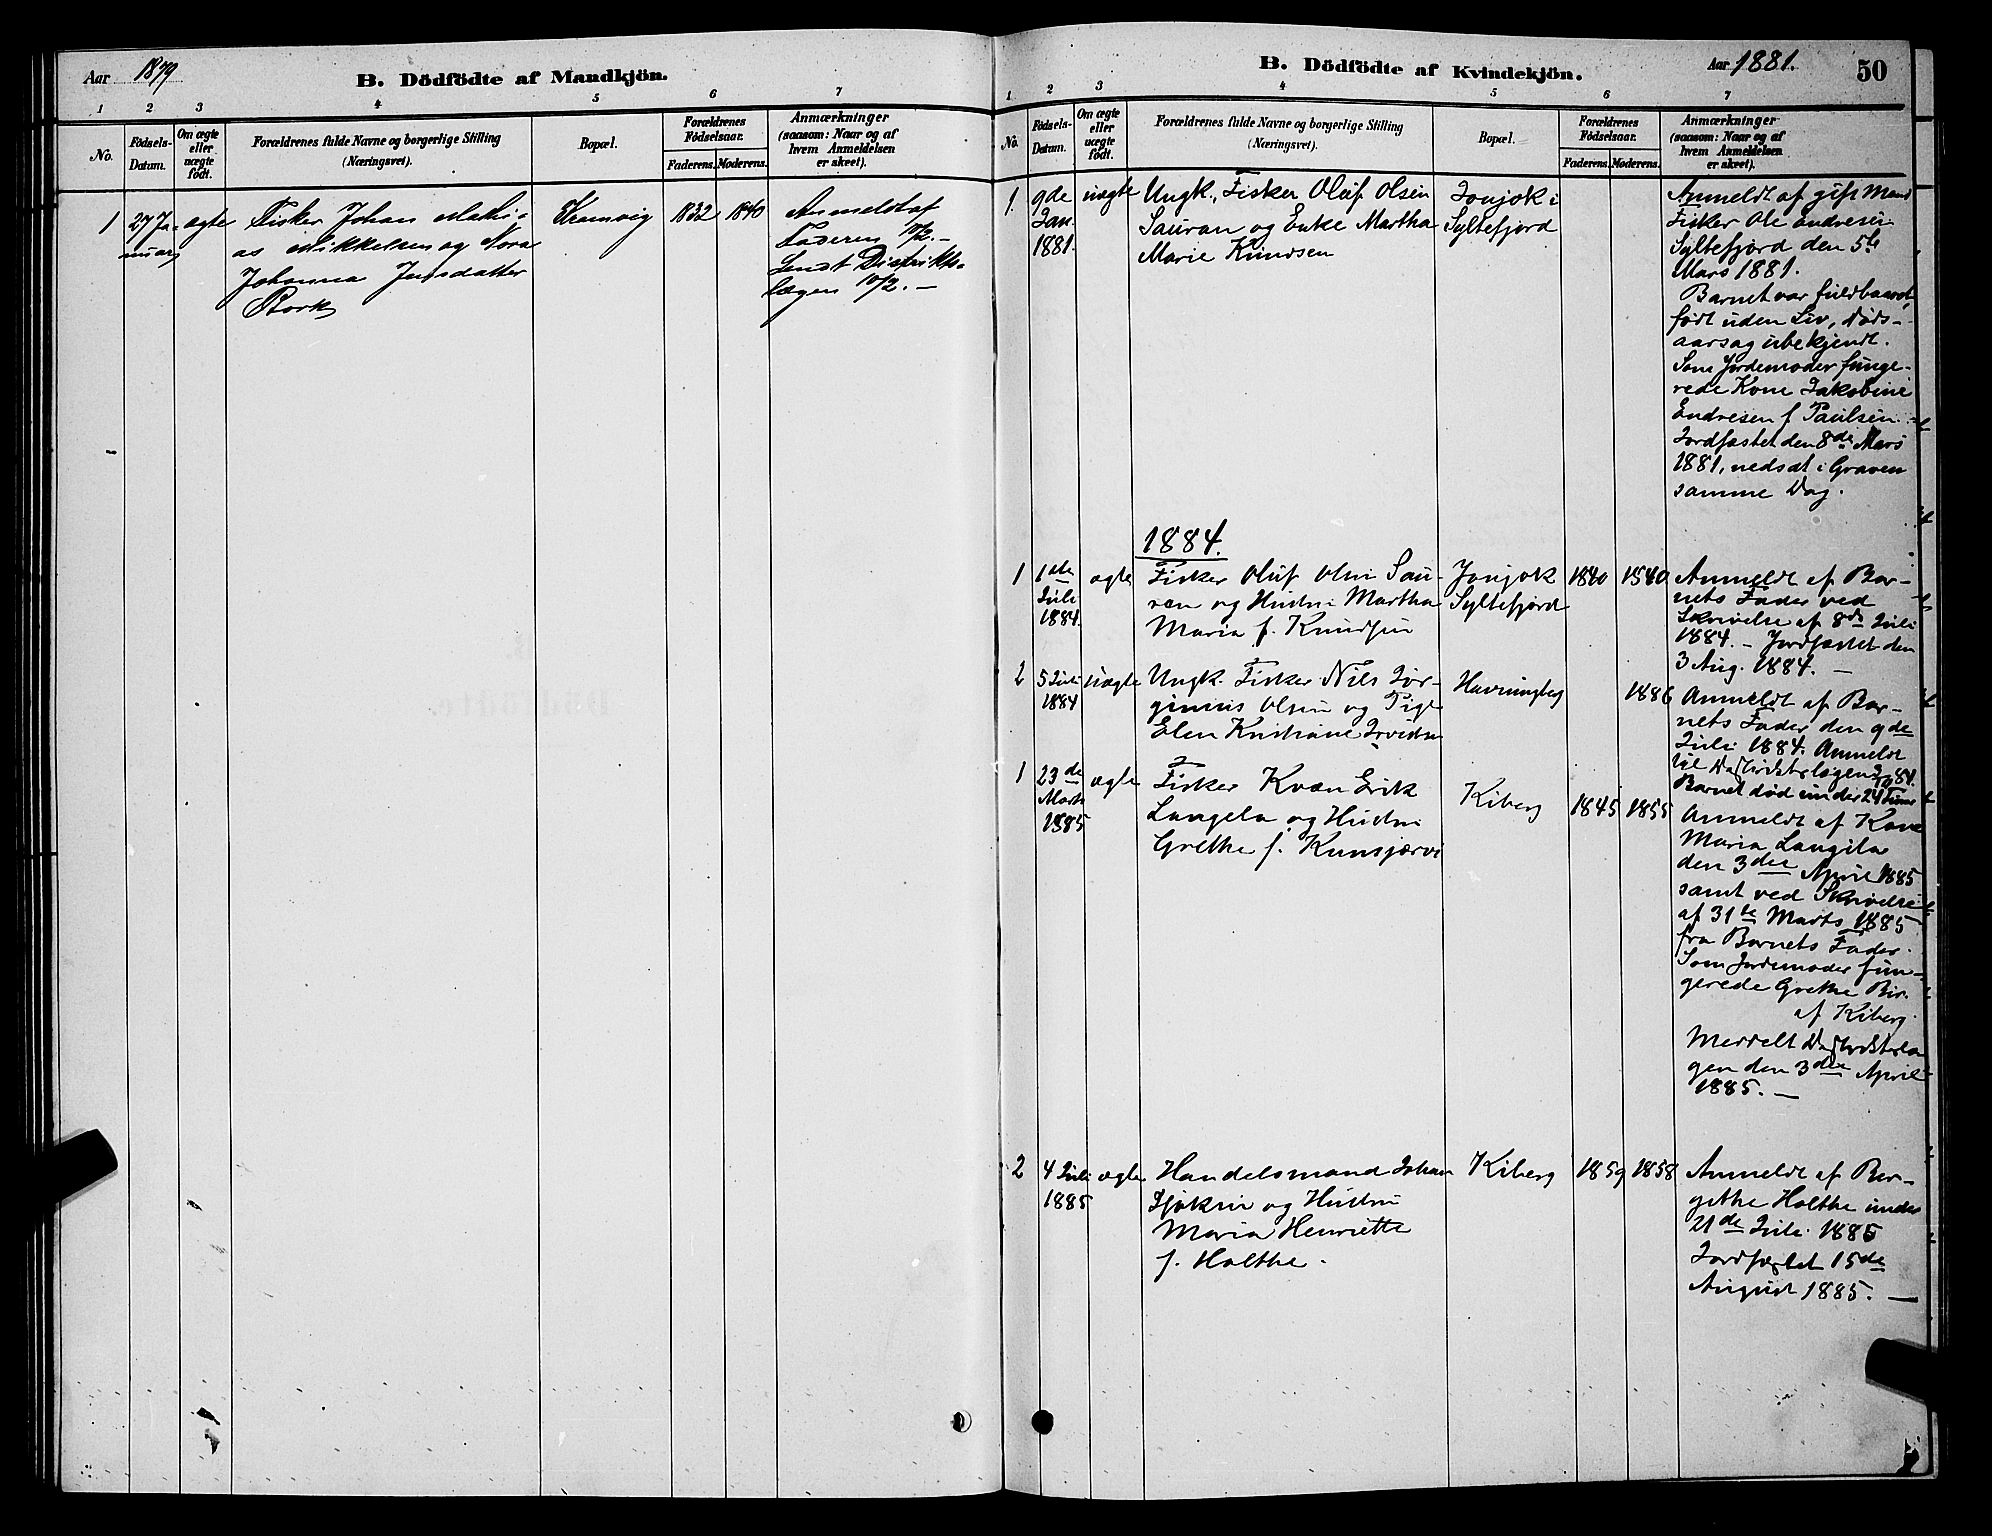 Aar 1879
B. Dödfödte af Mandkjön.
1 2 3 4 5 6 7
No.
Födsels-
Datum.
Om ægte
eller
uægte
födt.
Forældrenes fulde Navne og borgerlige Stilling
(Næringsvei).
Bopæl.
Forældrenes
Födselsaar.
Faderens. Moderens.
Anmærkninger
(saasom: Naar og af
hvem Anmeldelsen
er skeet).
1 27 Ja- ægte Fisker Johan Mathi- Kramvig 1832 1840 Anmeldt af
nuar as Mikkelsen og Nora Faderen 10/2. –
Johanna Jensdatter Sendt Distrikts-
Bork lægen 10/2. –
B. Dödfödte af Kvindekjön.
Aar 1881.
50
1 2 3 4 5 6 7
No.
Födsels-
Datum.
Om ægte
eller
uægte
födt.
Forældrenes fulde Navne og borgerlige Stilling
(Næringsvei).
Bopæl.
Forældrenes
Födselsaar.
Faderens. Moderens.
Anmærkninger
(saasom: Naar og af
hvem Anmeldelsen
er skeet).
1. 9de uægte Ungk. Fisker Oluf Olsen Jonjok i Anmeldt af gift Mand
Jan. Sauran og Enke Martha Syltefjord Fisker Ole Endresen
1881. Marie Knudsen Syltefjord den 5te
Mars 1881.
Barnet var fuldbaaret,
født uden Liv, Døds-
aarsag ubekjendt.
Som Jordemoder funge-
rede Kone Jakobine
Endresen f. Paulsen.
Jordfæstet den 8de Mars
1881, nedsat i Graven
samme Dag.
1884.
1 1ste ægte Fisker Oluf Olsen Sau- Jonjok 1840 1840 Anmeldt af Bar-
Juli ran og Hustru Martha Syltefjord nets Fader ved
1884. Maria f. Knudsen Skrivelse af 8de Juli
1884. – Jordfæstet den
3 Aug. 1884. –
2 5 Juli uægte Ungk. Fisker Nils Jör- Havningberg 1886 Anmeldt af Bar-
1884 ginus Olsen og Pige nets Fader den 9de
Elen Kristiane Juli 1884. Anmeldt
til Distriktslægen
Barnet død under 24 Timer
1 23de ægte Fisker Kvæn Erik Kiberg 1845 1855 Anmeldt af Kone
Marts Langela og Hustru Maria Langela
1885 Grethe f. Kunsjærvi den 3die April 1885
samt ved Skrivelse
af 31te Marts 1885
fra Barnets Fader.
Som Jordemoder fun-
gerede Grethe Bir.
af Kiberg.
Meddelt Distriktslæ
gen den 3die April
1885. –
2 4 Juli ægte Handelsmand Johan Kiberg 1859 1858 Anmeldt af Ber-
1885 og Hustru githe Holthe under
Maria Henriette 21de Juli 1885
f. Holthe. Jordfæstet 15de
August 1885. –